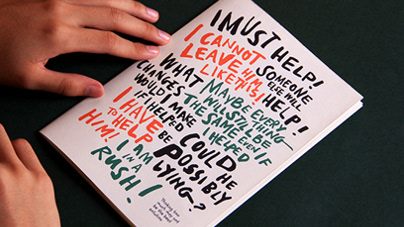 I MUST HELP!
I CANNOT
LEAVE HIM
LIKE THIS!
SOMEONE
ELSE WILL
HELP!
WHAT
CHANGES
WOULD I MAKE
I HELPED
MAYBE EVERY-
THING
WILL STILL BE
THE SAME EVEN IF
I HELPED
I HAVE
TO HELP
HIM!
COULD HE
POSSIBLY
LYING~?
I'M
IN A
RUSH!